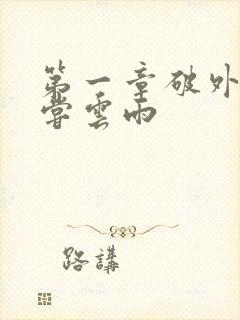 第一章破外
嘗雲雨
路講